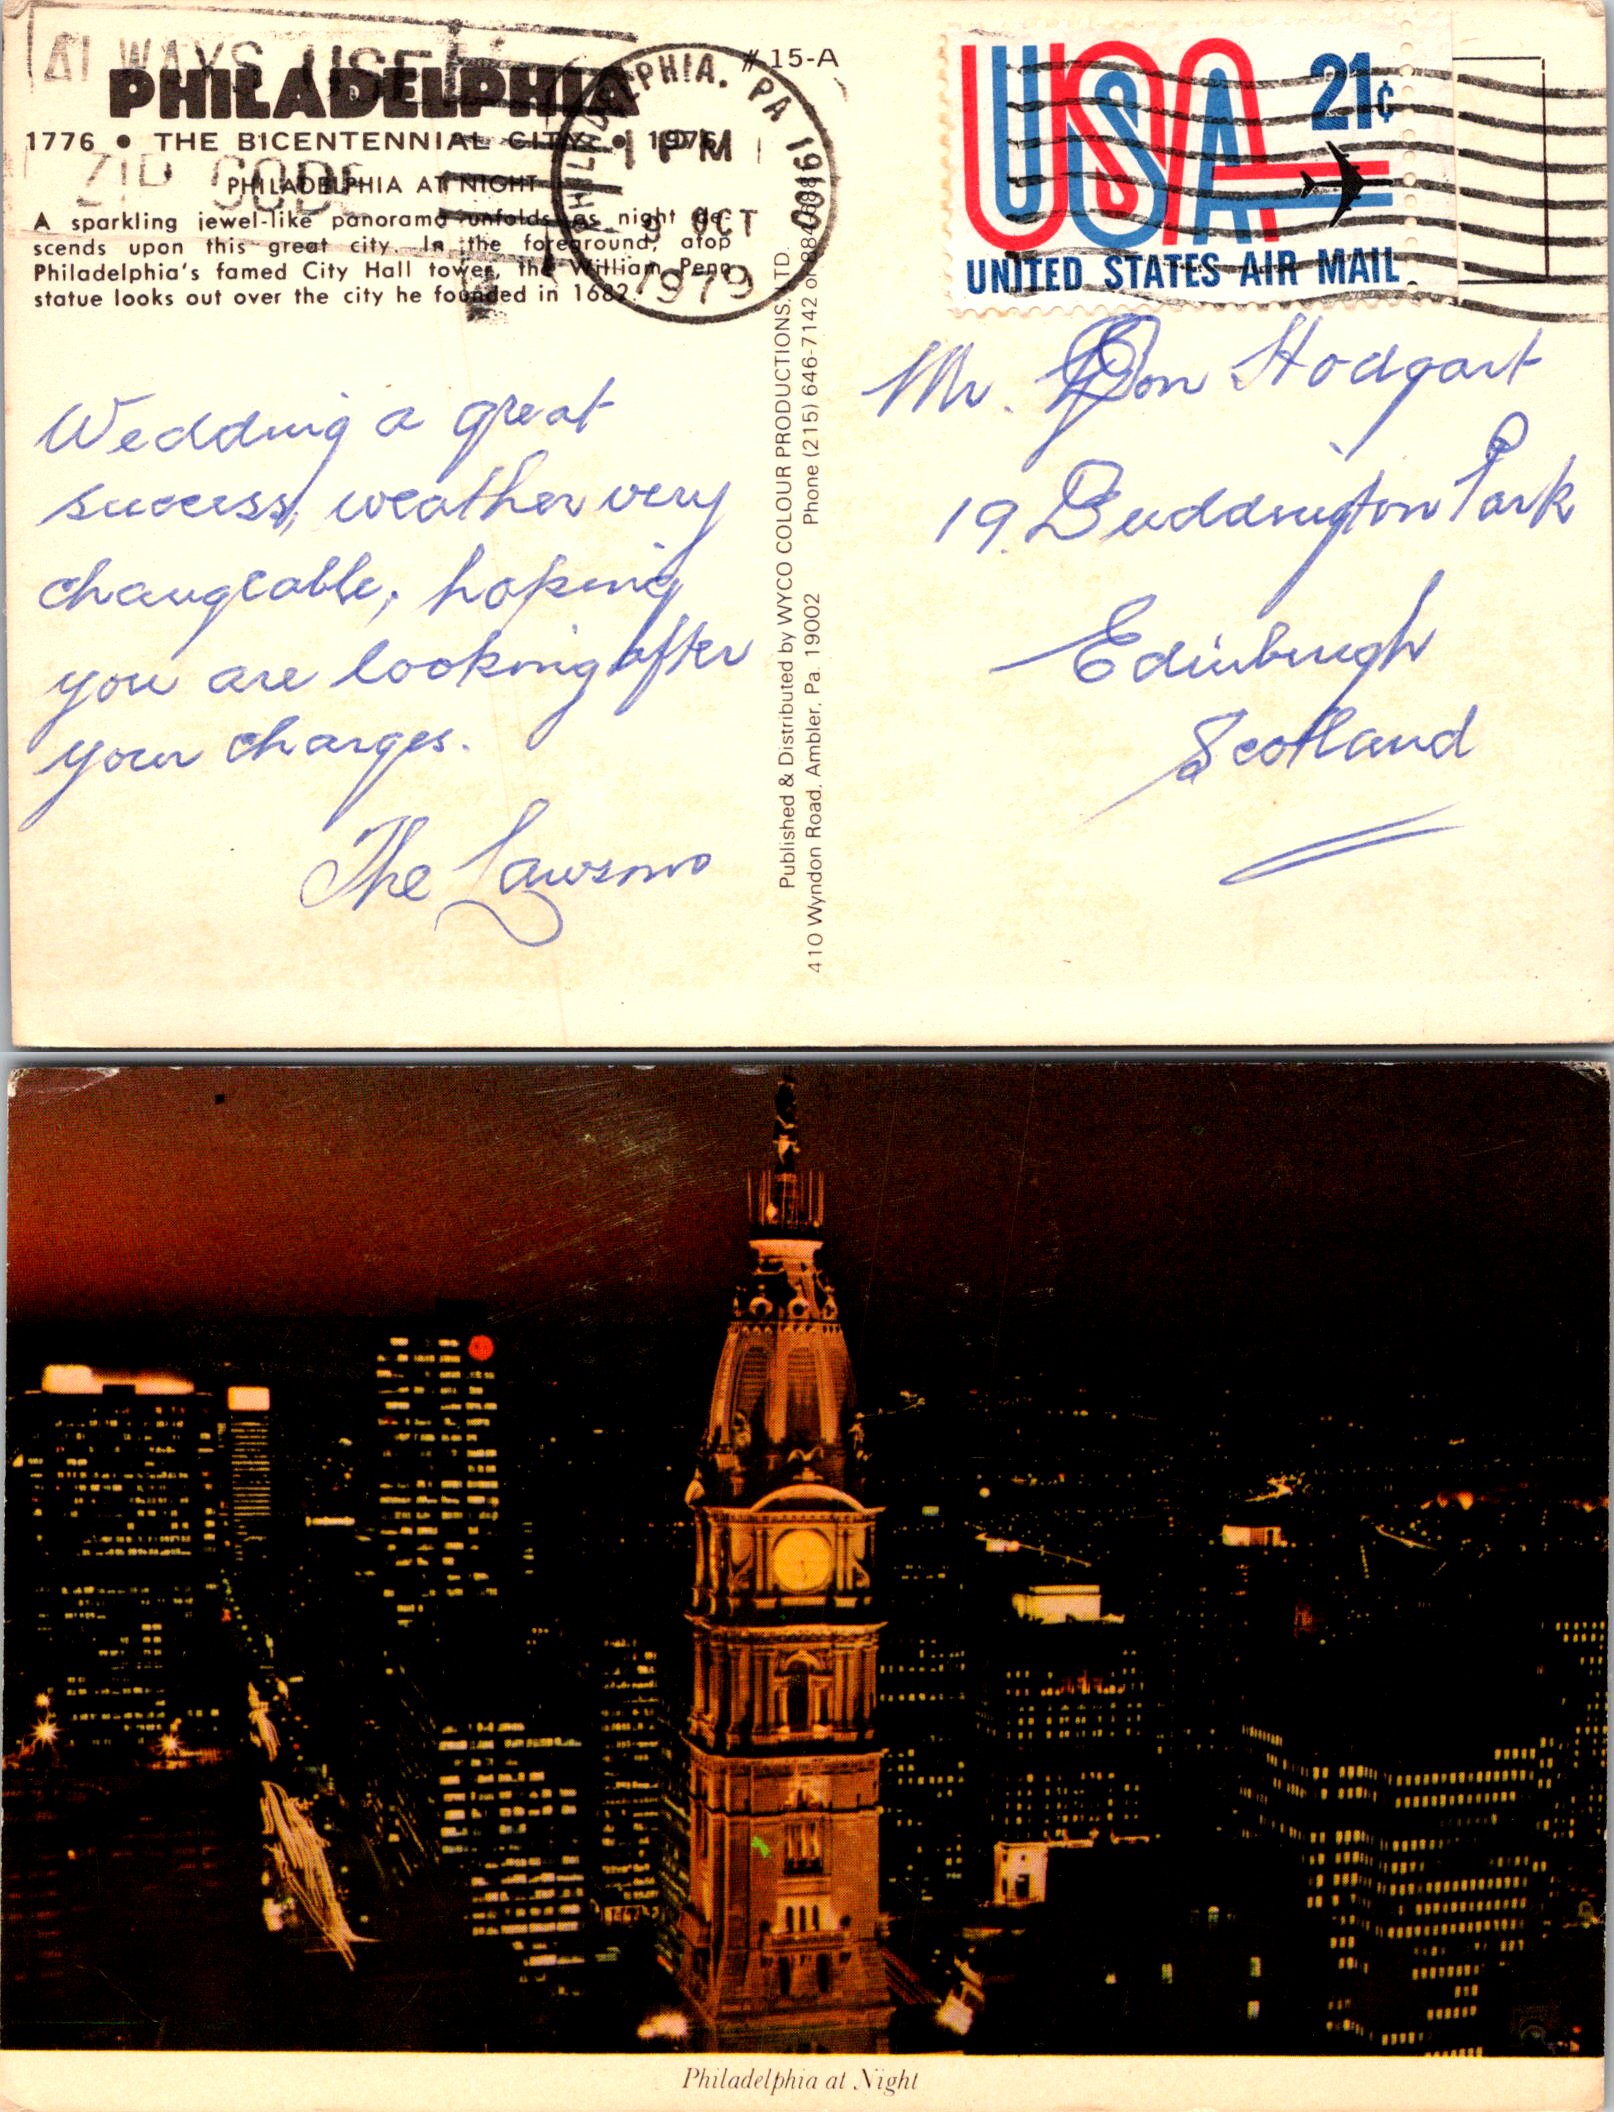 ALWAYS USE
ZIP CODE
PHILADELPHIA
1776 • THE BICENTENNIAL CITY • 1976
PHILADELPHIA AT NIGHT
A sparkling jewel-like panorama unfolds as night de-
scends upon this great city. In the foreground, atop
Philadelphia's famed City Hall tower, the William Penn
statue looks out over the city he founded in 1682.
PHILADELPHIA, PA 191
1 PM
9 OCT
1979
# 15-A
USA
21¢
UNITED STATES AIR MAIL
Wedding a great
success, weather very
changeable, hoping
you are looking after
your charges.
The Lawsons
Published & Distributed by WYCO COLOUR PRODUCTIONS, LTD.
410 Wyndon Road, Ambler, Pa. 19002 Phone (215) 646-7142 or
Mr. Don Hodgart
19. Buddington Park
Edinburgh
Scotland
Philadelphia at Night